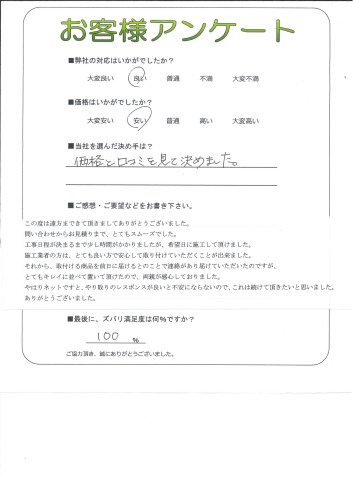 お客様アンケート
■弊社の対応はいかがでしたか?
大変良い 良い 普通 不満 大変不満
■価格はいかがでしたか?
大変安い 安い 普通 高い 大変高い
■当社を選んだ決め手は?
価格と口コミを見て決めました。
■ご感想・ご要望などをお書き下さい。
この度は遠方まできて頂きましてありがとうございました。
問い合わせからお見積りまで、とてもスムーズでした。
工事日程が決まるまで少し時間がかかりましたが、希望日に施工して頂けました。
施工業者の方は、とても良い方で安心して取り付けていただくことが出来ました。
それから、取付ける商品を前日に届けるとのことで連絡があり届けていただいたのですが、
とてもキレイに並べて置いて頂けたので、両親が感心しておりました。
やはりネットですと、やり取りのレスポンスが良いと不安にならないので、これは続けて頂きたいと思いました。
ありがとうございました。
■最後に、ズバリ満足度は何%ですか?
100 %
ご協力頂き、誠にありがとうございました。